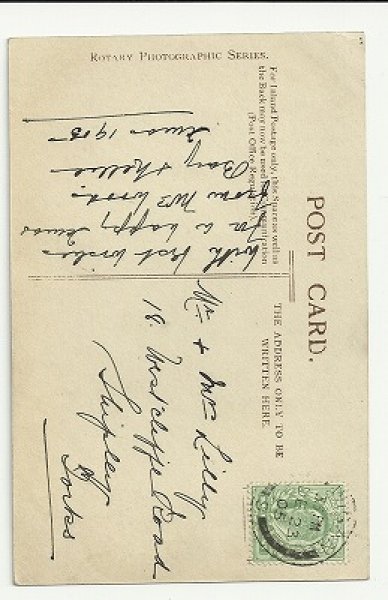 ROTARY PHOTOGRAPHIC SERIES.
POST CARD.
For Inland Postage only, this Space as well as
the Back may now be used for Communication
(Post Office Regulation).
THE ADDRESS ONLY TO BE
WRITTEN HERE.
With best wishes
for a happy Xmas
from Mrs Wood.
Bay & Nellie
Xmas 1905
Mr & Mrs Lilly
18. Westcliffe Road
Shipley
Yorks